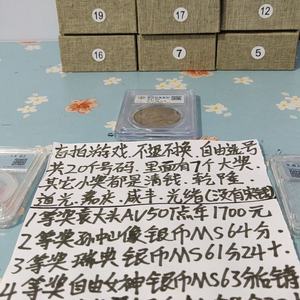 19
17
12
16
7
5
盲拍游戏 不退不换 自由选号
共20个号码 里面有7个大奖
其它小奖都是清钱 乾隆
道光 嘉庆 咸丰 光绪(没有宋钱)
1等奖袁大头AU50T点车1700元
2等奖孙中山像银币MS64分
3等奖 银币MS61分24十
4等奖自由女神银币MS63分